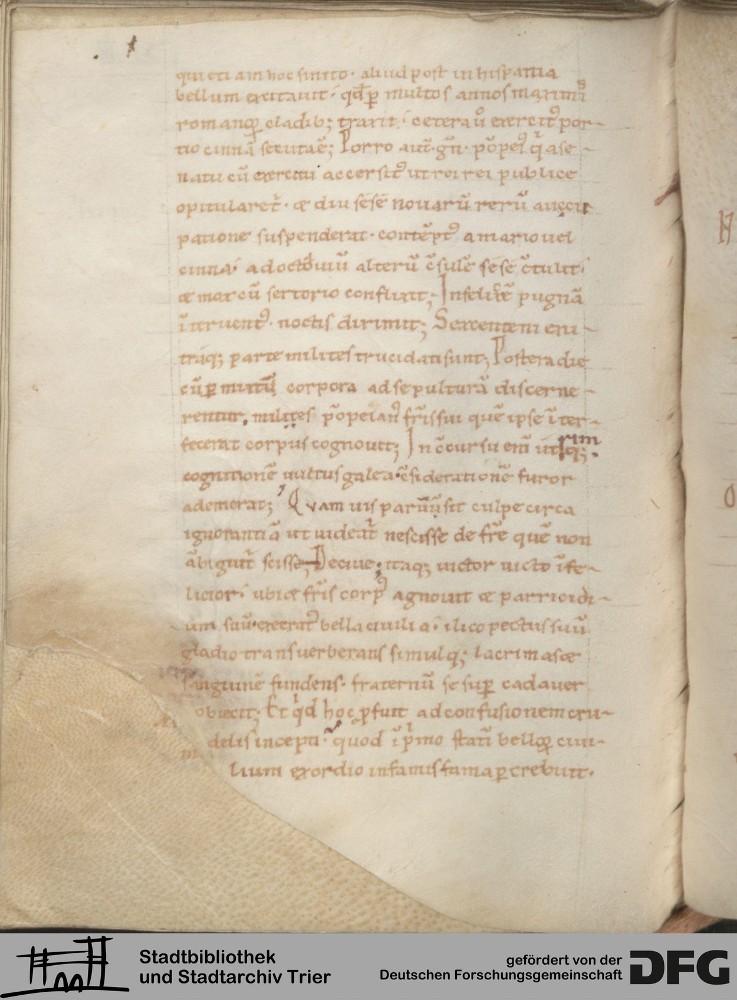 qui etiam hoc finito · aliud post in hispania
bellum excitauit · qđ ꝑ multos annos maximis
romanoꝝ cladib; traxit · cetera ů exercitꝰ por-
tio cinnā secuta ē; Porro aut̄ gn̄ · pōpeiꝰ q̇ a se-
natu cū exercitu accersitꝰ ut roi rei publice
opitularet̄ · & diu sese nouarū rerū aucu
patione suspenderat · contēptꝰ a mario uel
cinna · ad octauiū alterū c̄sulē sese c̄tulit ·
& mox cū sertorio conflixit; Infelicē pugnā
īteruentꝰ noctis dirimit; Sexcenteni eni-
traq; parte milites trucidati sunt; Postera die
cū ꝑmixtī corpora ad sepulturā discerne-
rentur, milites pōpeianꝰ fr̄is sui quē ipse īter-
fecerat corpus cognouit; In c̄cursu enī utriq;
rim
cognitionē uultus galea · c̄siderationē furor
ademerat; Quam uis parūū sit culpe circa
ignorantiā ut uideat̄ nescisse de fr̄e quē non
ābigitur̄ scisse; Deciue; itaq; uictor uicto īfe-
licior · ubi & fr̄is corpꝰ agnouit & parricidi-
um suū · execratꝰ bella ciuilia · ilico pectus suū
gladio transuerberans simulq; lacrimas &
sanguinē fundens · fraternū se suꝑ cadauer
obiecit; Et qd hoc ꝓfuit ad confusionem cru-
delis incepti · quod ī pͥmo statī belloꝝ ciui-
lium exordio infamis fama ꝑcrebuit ·
Stadtbibliothek
und Stadtarchiv Trier
gefördert von der
Deutschen Forschungsgemeinschaft
DFG